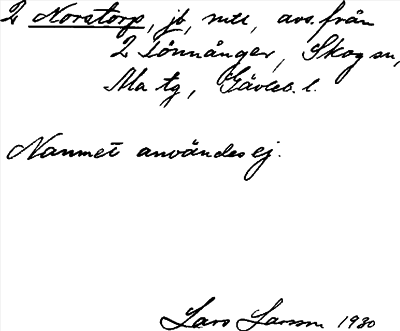 2 Norstorp, jb, mtl, avs. från
2 Lönnånger, Skog sn,
Ma tg, Gävleb. l.
Namnet användes ej.
Lars Larsson 1930